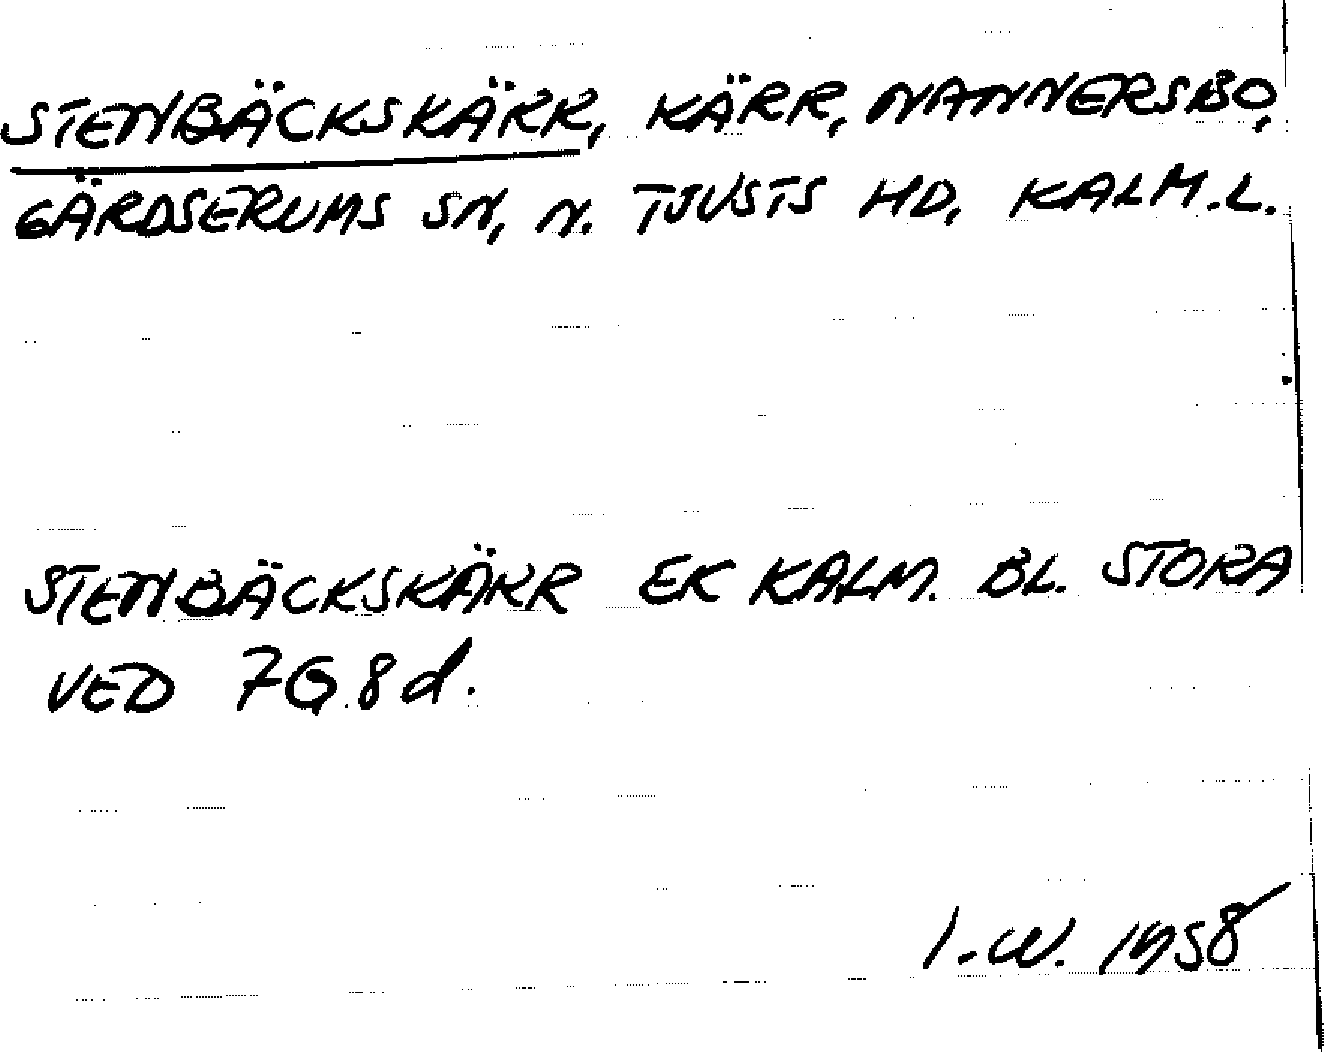 STENBÄCKSKÄRR, KÄRR, NANNERSBO,
GÄRDSERUMS SN, N. TJUSTS HD, KALM.L.
STENBÄCKSKÄRR EK KALM. BL. STORA
VED 7G.8d.
I.W. 1958